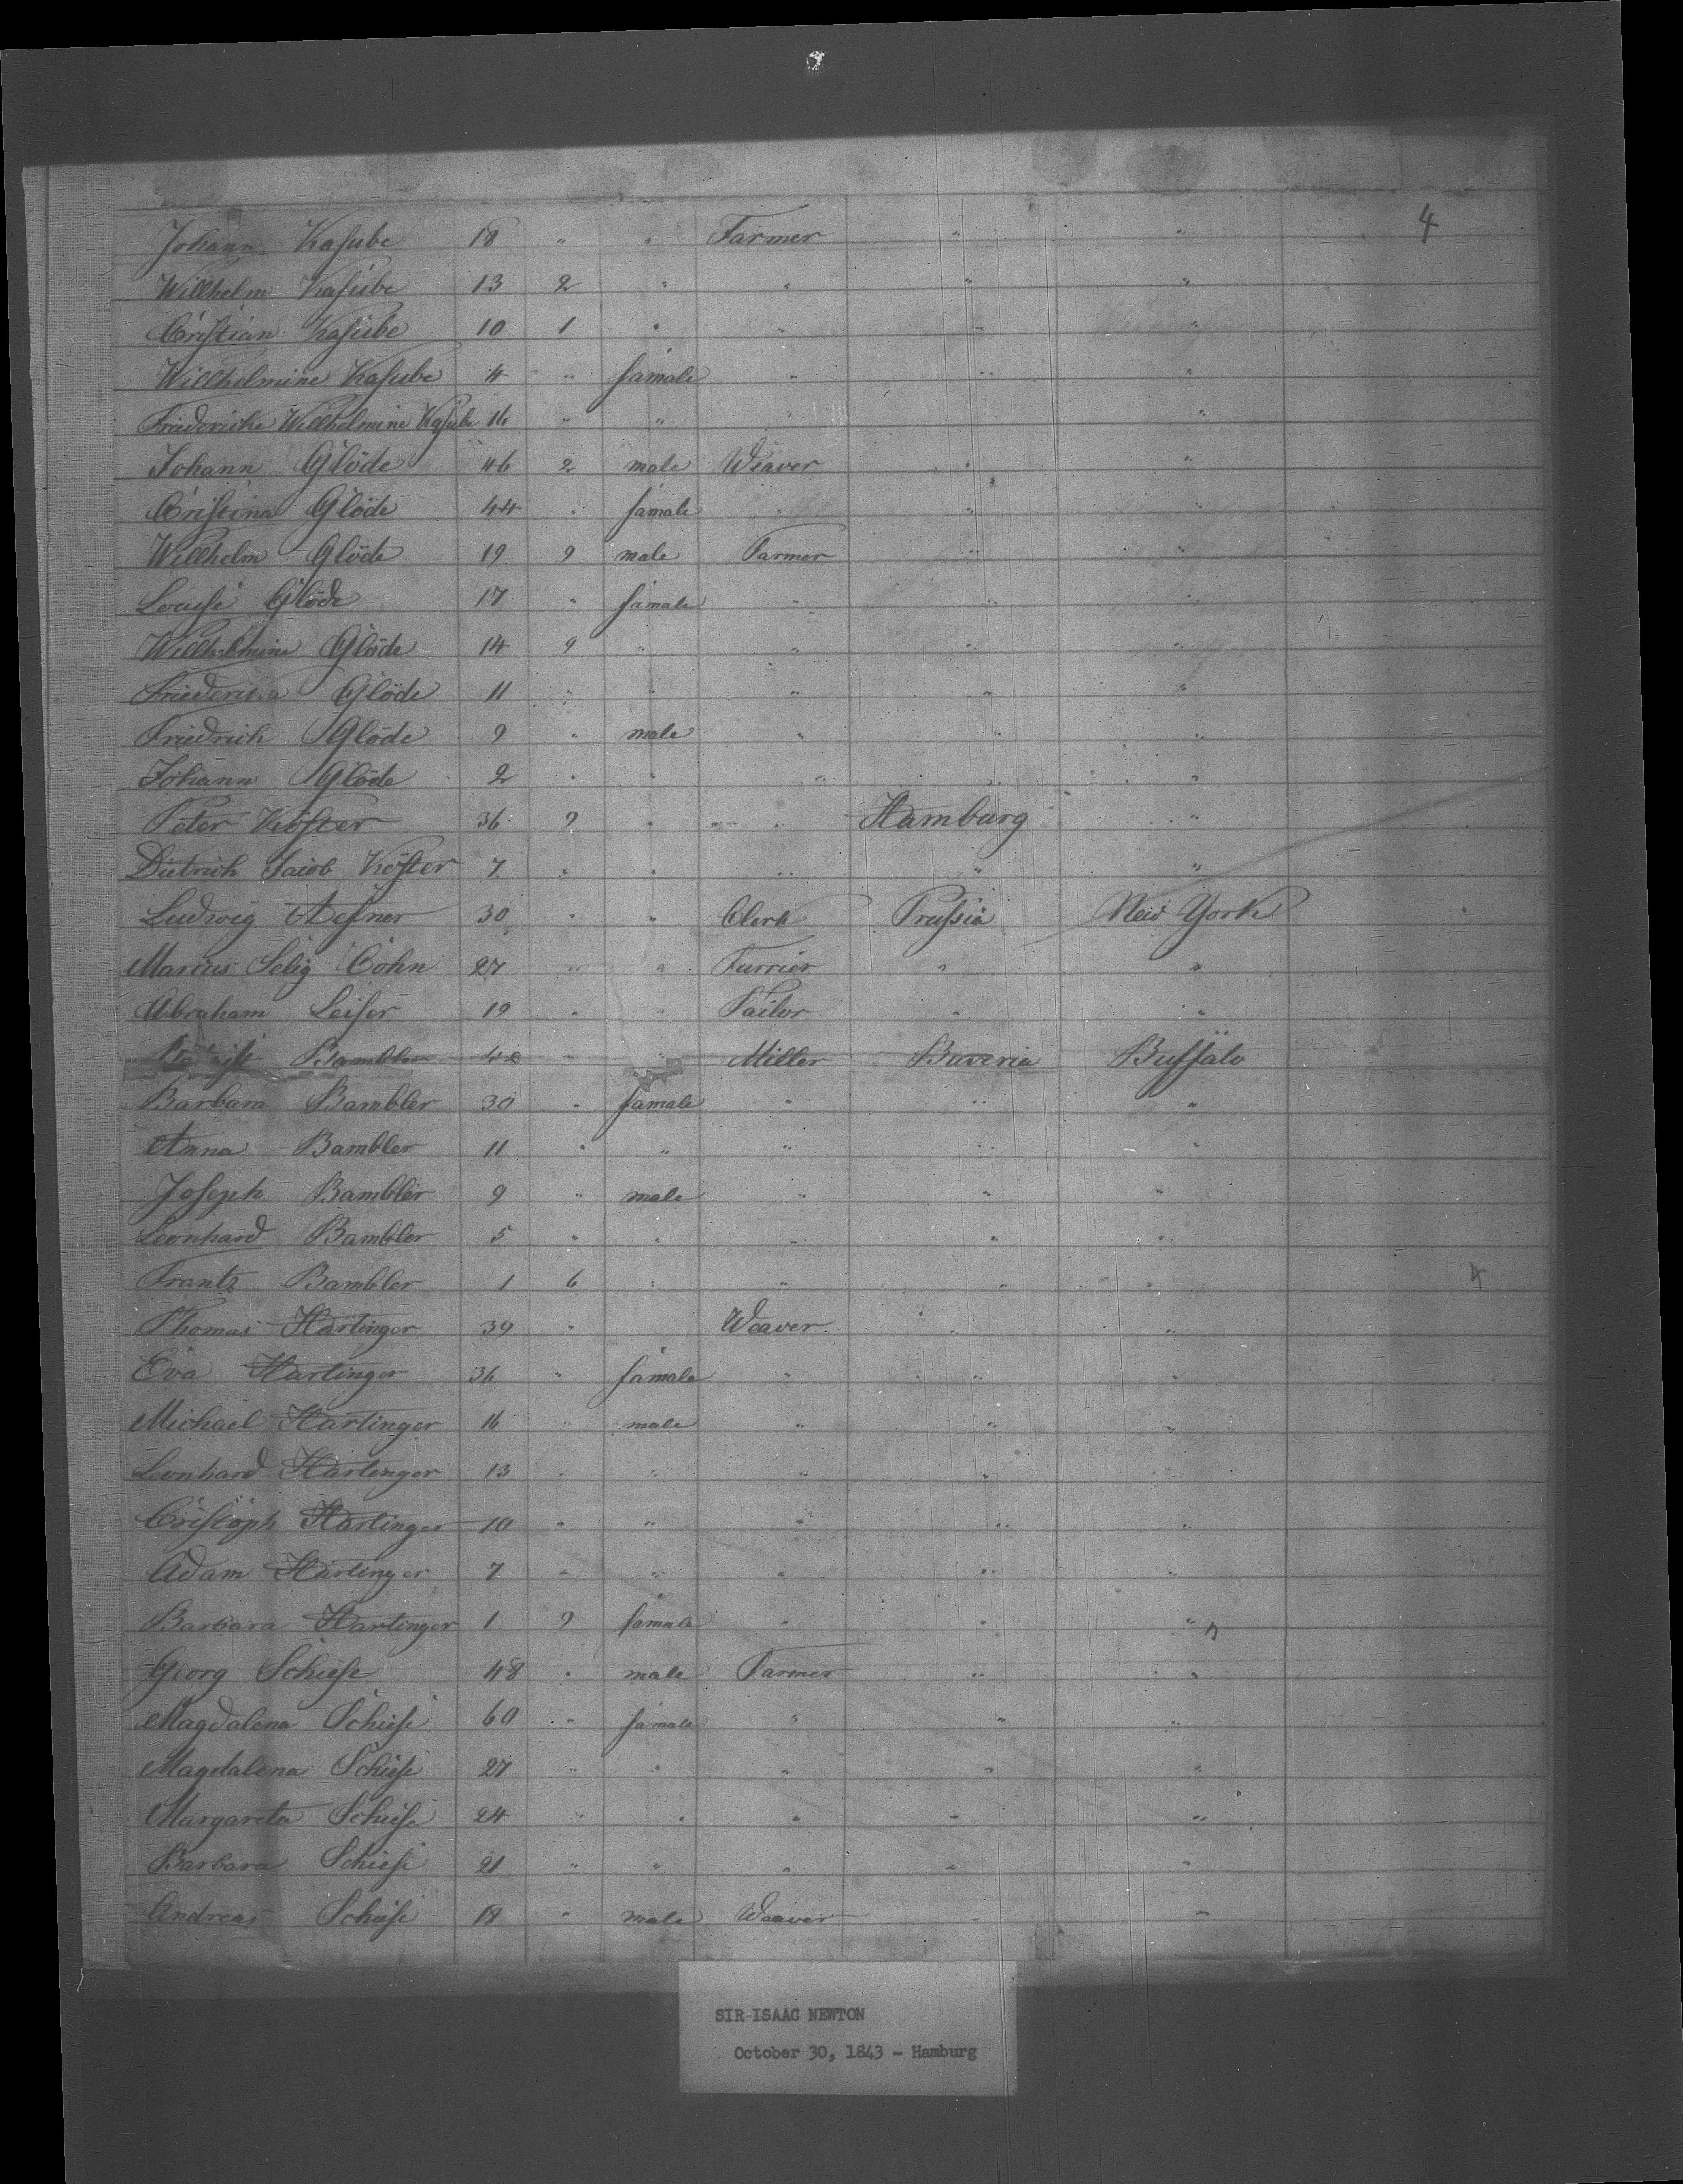 Johann Kasube 18 " " Farmer " " 4
Willhelm Kasube 13 2 " " " "
Cristian Kasube 10 1 " " " "
Willhelmine Kasube 4 " famale " " "
Friedericke Willhelmine Kasube 16 " " " "
Johann Glöde 46 2 male Weaver " "
Cristina Glöde 44 " famale " " "
Willhelm Glöde 19 9 male Farmer " "
Louise Glöde 17 " famale " " "
Willhelmine Glöde 14 9 " " " "
Friederika Glöde 11 " " " " "
Friedrich Glöde 9 " male " " "
Johann Glöde 2 " " " " "
Peter Köster 36 9 " " Hamburg "
Dietrich Jacob Köster 7 " " " " "
Ludwig Aesner 30 " " Clerk Prussia New York
Marcus Selig Cohn 27 " " Furrier " "
Abraham Leiser 19 " " Tailor " "
Bambler " " Miller Baveria Buffalo
Barbara Bambler 30 " famale " " "
Anna Bambler 11 " " " " "
Joseph Bambler 9 " male " " "
Leonhard Bambler 5 " " " " "
Frantz Bambler 1 6 " " " " 4
Thomas Hartinger 39 " Weaver " "
Eva Hartinger 36 " famale " " "
Michael Hartinger 16 " male " " "
Leonhard Hartinger 13 " " " " "
Cristoph Hartinger 10 " " " " "
Adam Hartinger 7 " " " " "
Barbara Hartinger 1 9 famale " " "
Georg Schiese 48 " male Farmer " "
Magdalena Schiese 60 " famale " " "
Magdalena Schiese 27 " " " " "
Margareta Schiese 24 " " " " "
Barbara Schiese 21 " " " " "
Andreas Schiese 18 " male Weaver " "
SIR ISAAC NEWTON
October 30, 1843 - Hamburg